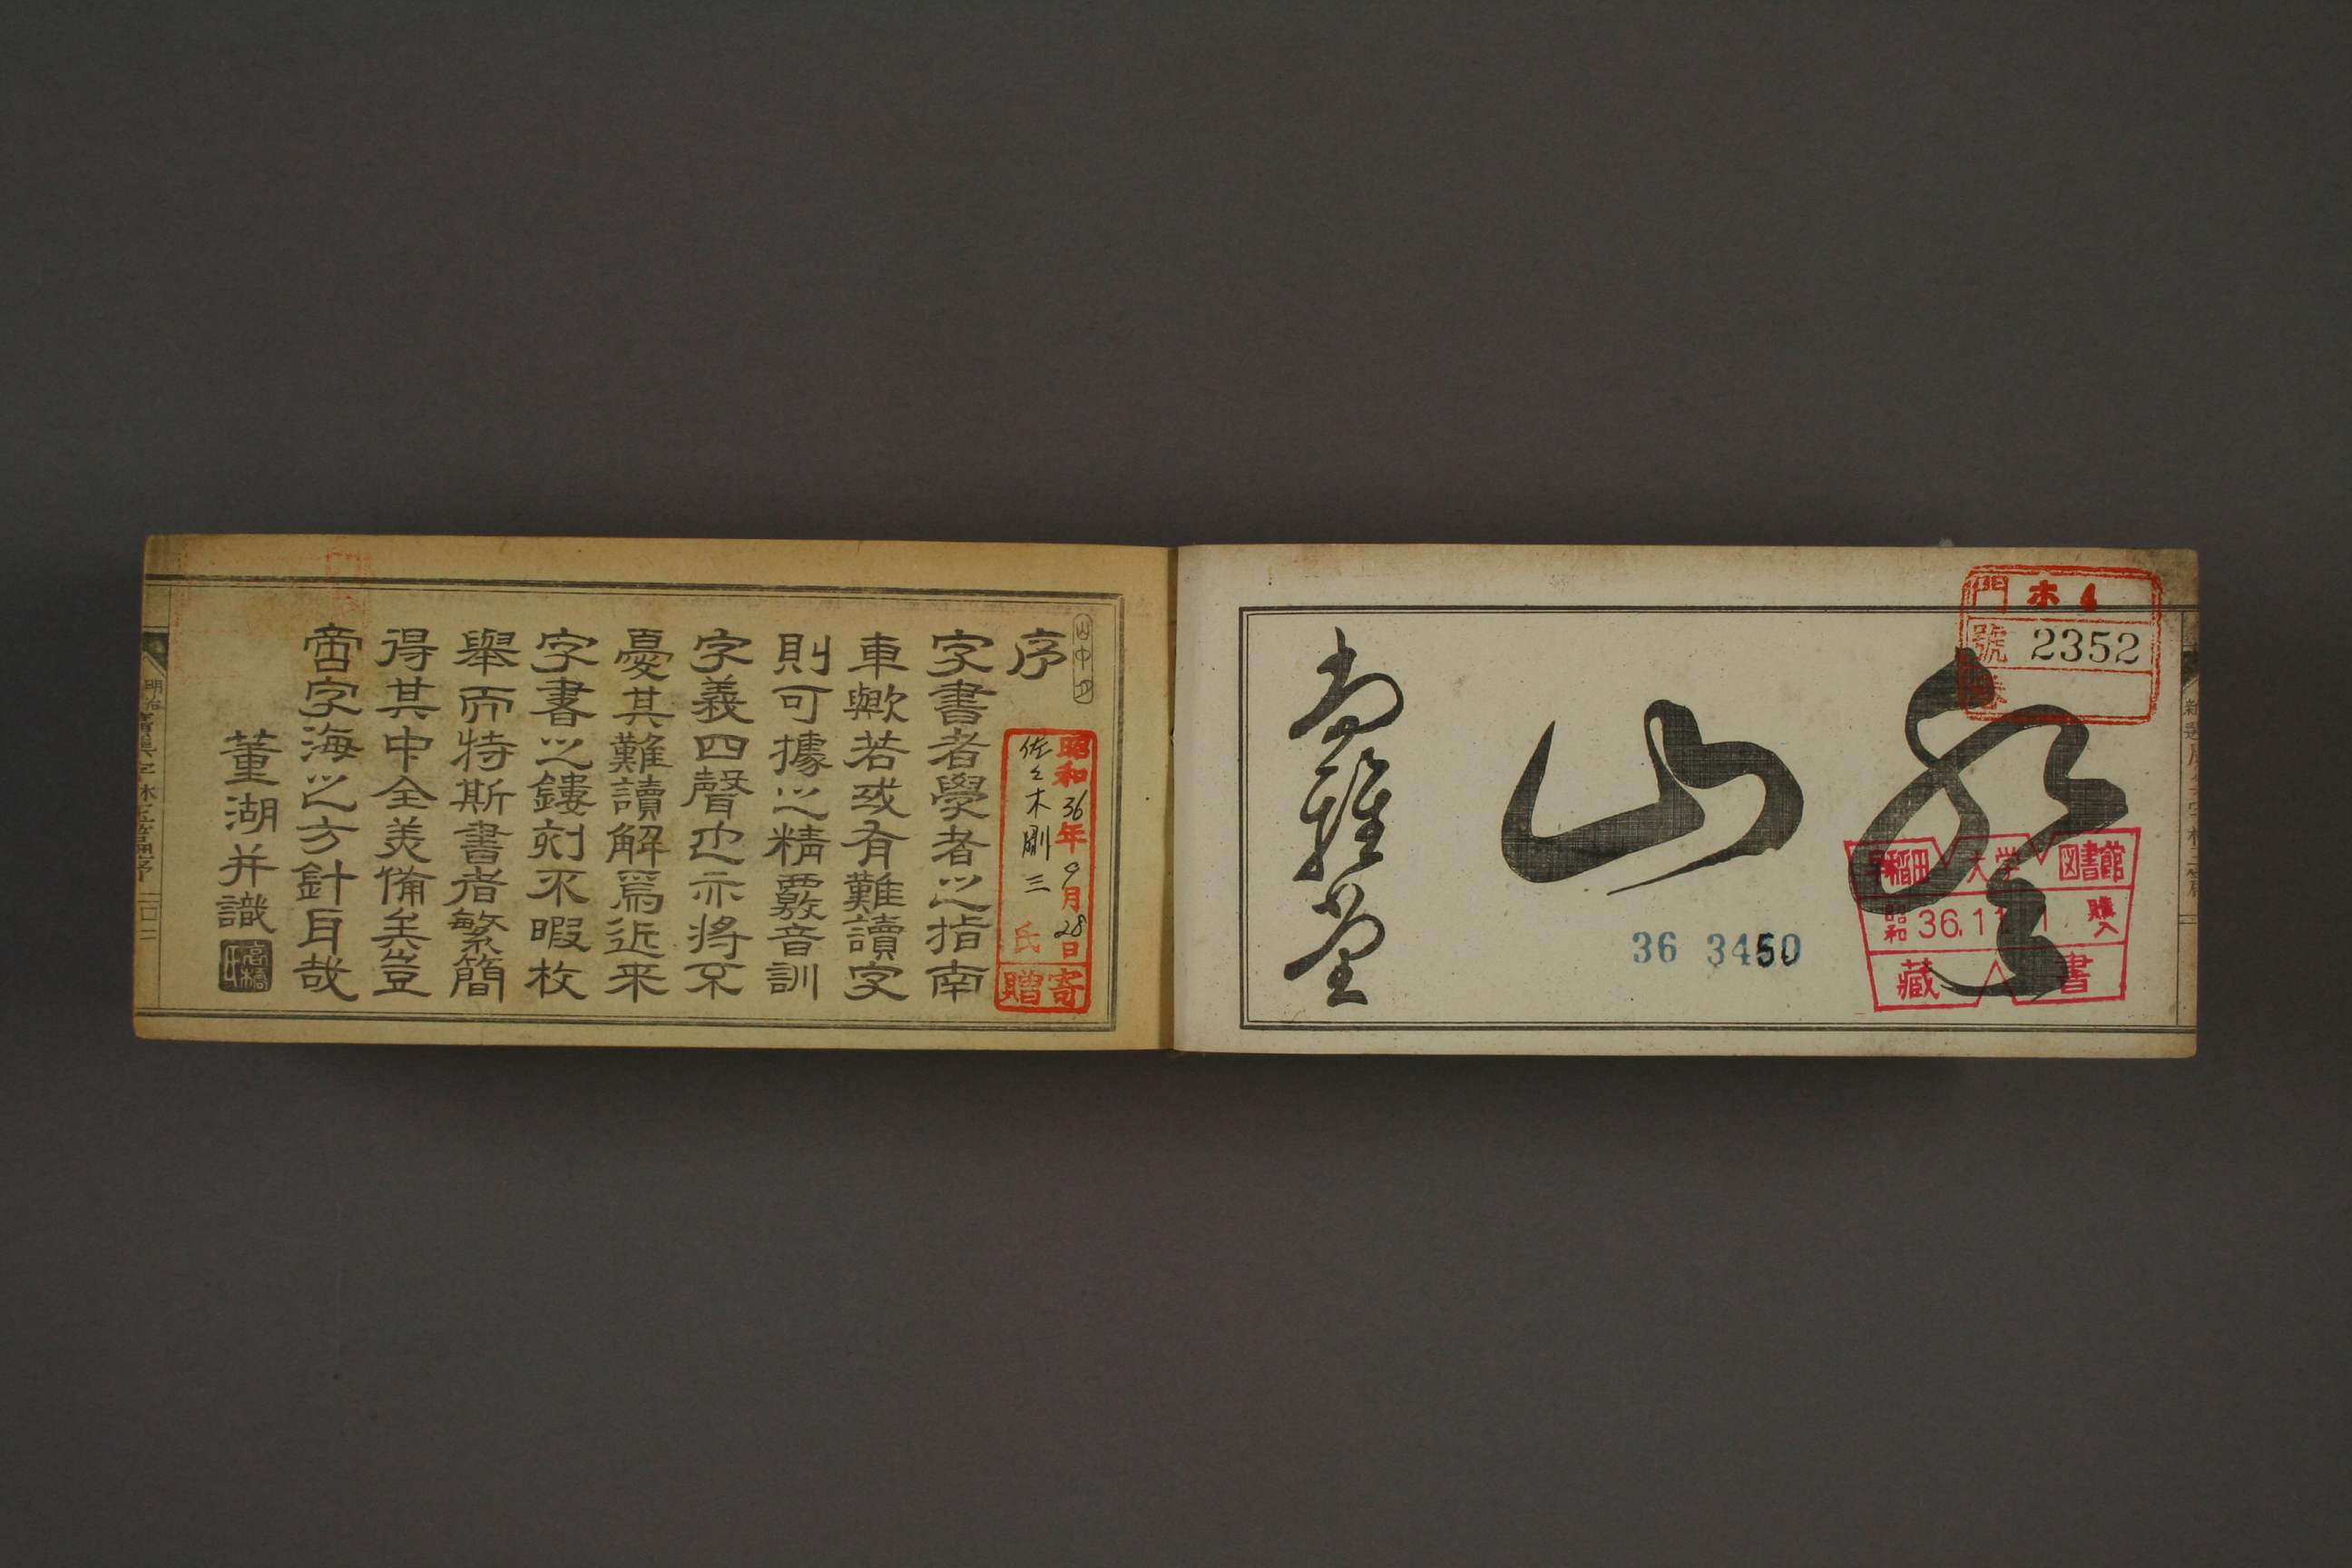 門 ホ4
號 2352
巻
山
早稲田大学図書館
昭和 36.11.1 購入
蔵書
36 3450
序
字書者學者之指南
車歟若或有難讀字
則可據之精覈音訓
字義四聲也亦将不
憂其難讀解焉近来
字書之鏤刻不暇枚
舉而特斯書者繁簡
得其中全美備矣豈
啻字海之方針耳哉
董湖并識
昭和36年9月28日
佐々木剛三氏
寄贈